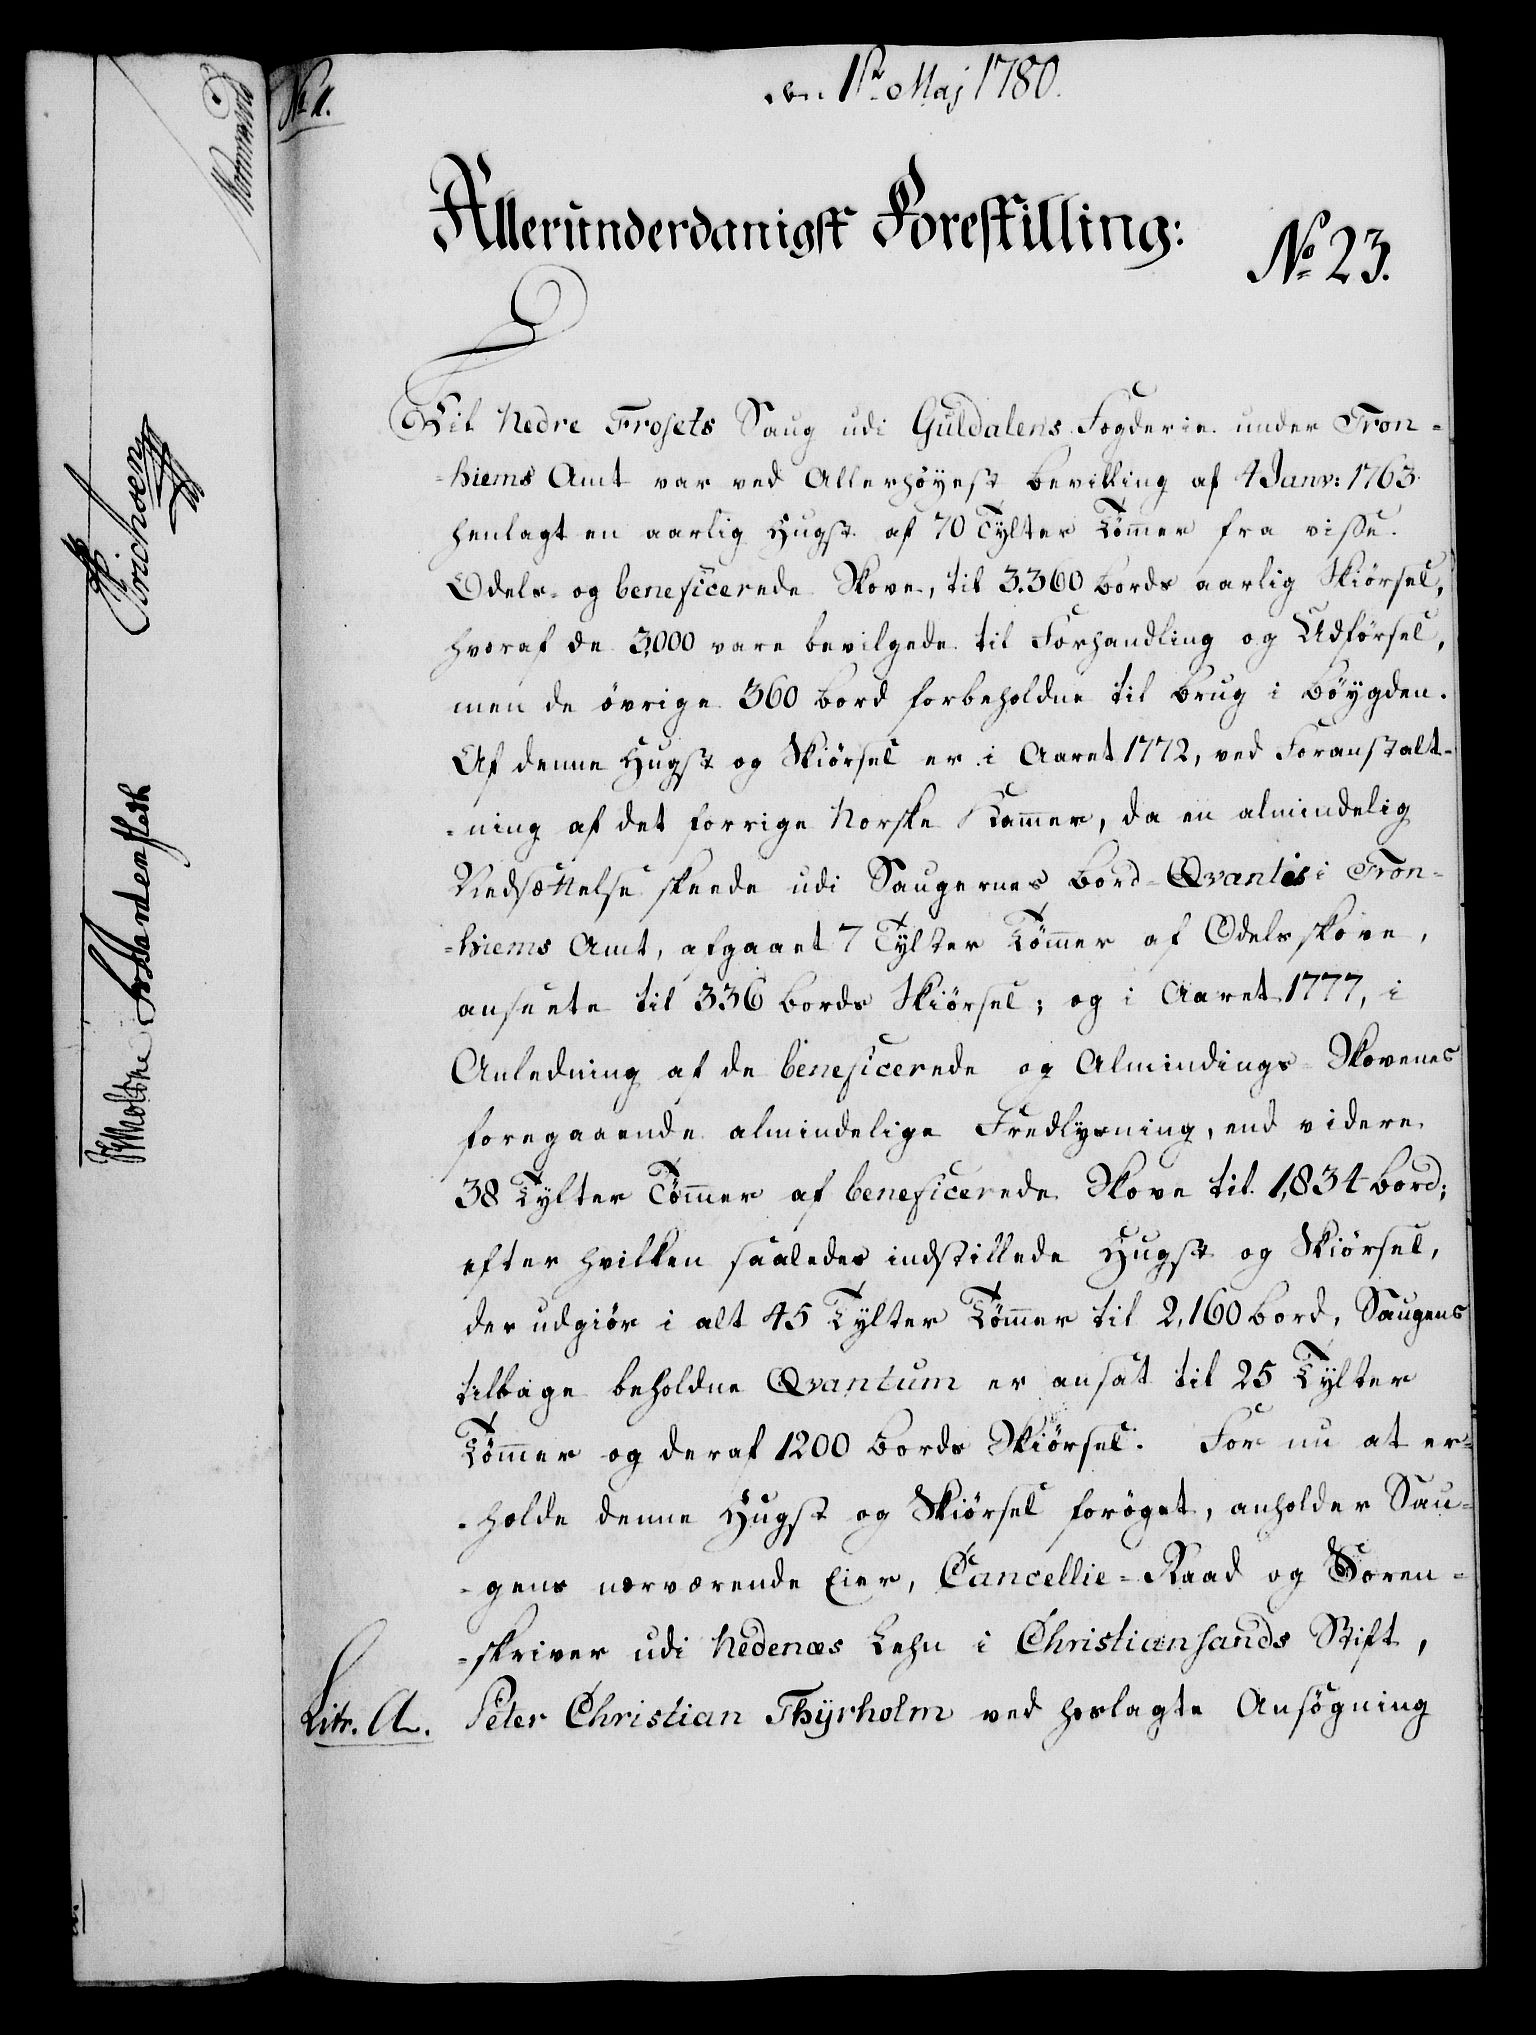 den 1ste Maj 1780.
Allerunderdanigst Forestilling:
No 23.
Til Nedre Frosets Saug udi Guldalens Fogderie under Tron-
-hiems Amt var ved Allerhøyest Bevilling af 4 Janv: 1763
henlagt en aarlig Hugst af 70 Tylter Tømer fra visse
Odels- og beneficerede Skove, til 3.360 Bords aarlig Skiørsel,
hvoraf de 3,000 vare bevilgede til Forhandling og Udførsel,
men de øvrige 360 Bord forbeholdne til Brug i Bøygden.
Af denne Hugst og Skiørsel er i Aaret 1772, ved Foranstalt-
-ning af det forrige Norske Kamer, da en almindelig
Nedsættelse skeede udi Saugernes Bord-Qvantis i Tron-
-hiems Amt, afgaaet 7 Tylter Tømer af Odels skove,
anseete til 336 Bords Skiørsel; og i Aaret 1777, i
Anledning af de beneficerede og Almindings-Skovenes
foregaaende almindelige Fredlysning, end videre
38 Tylter Tømer af beneficerede Skove til 1,834 Bord;
efter hvilken saaledes indstillede Hugst og Skiørsel,
der udgiør i alt 45 Tylter Tømer til 2,160 Bord, Saugens
tilbage beholdne Qvantum er ansat til 25 Tylter
Tømer og deraf 1200 Bords Skiørsel. For nu at er-
-holde denne Hugst og Skiørsel forøget, anholder Sau-
-gens nærværende Eier, Cancellie-Raad og Soren-
-skriver udi Nedenæs Lehn i Christiansands Stift,
Litr. A. Peter Christian Thyrholm ved hoslagte Ansøgning